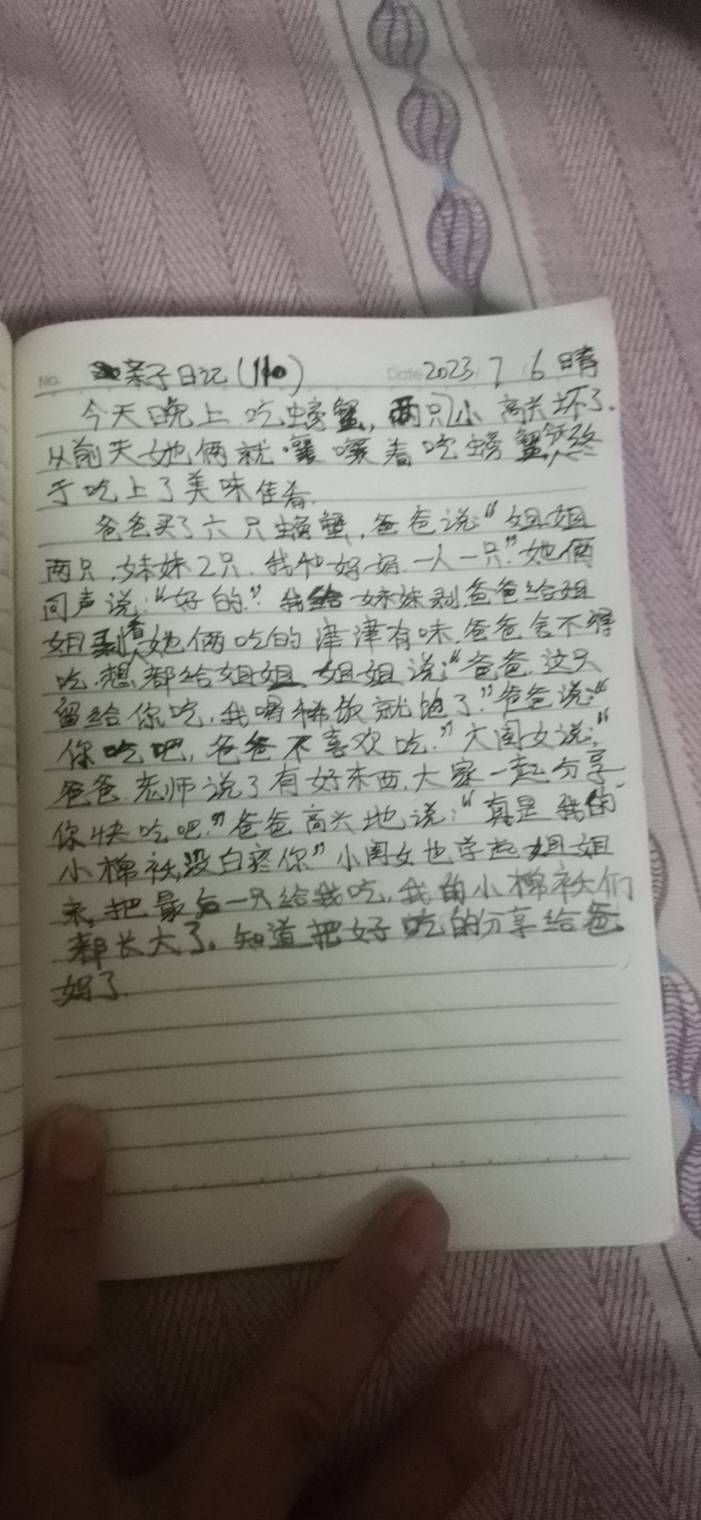 No. 亲子日记(110) Date 2023 7 16 晴
今天晚上吃螃蟹,两只小高兴坏了.
从前天她俩就嚷嚷着吃螃蟹,今天终
于吃上了美味佳肴.
爸爸买了六只螃蟹,爸爸说“姐姐
两只,妹妹2只,我和妈妈一人一只”她俩
同声说:“好的”.我给妹妹剥爸爸给姐
姐剥,看她俩吃的津津有味.爸爸舍不得
吃,想都给姐姐,姐姐说:“爸爸,这只
留给你吃,我喝稀饭就饱了.”爸爸说:“
你吃吧,爸爸不喜欢吃.”大闺女说:“
爸爸,老师说了有好东西,大家一起分享,
你快吃吧.”爸爸高兴地说:“真是我的
小棉袄,没白疼你”小闺女也学起姐姐
来,把最后一只给我吃,我的小棉袄们
都长大了.知道把好吃的分享给爸
妈了.